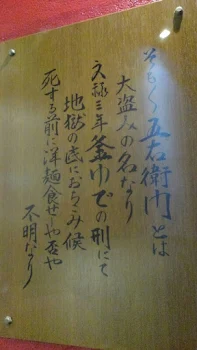 そもそも五右衛門とは
大盗人の名なり
文禄三年釜ゆでの刑にて
地獄の底におちこみ候
死する前に洋麺食せしや否や
不明なり